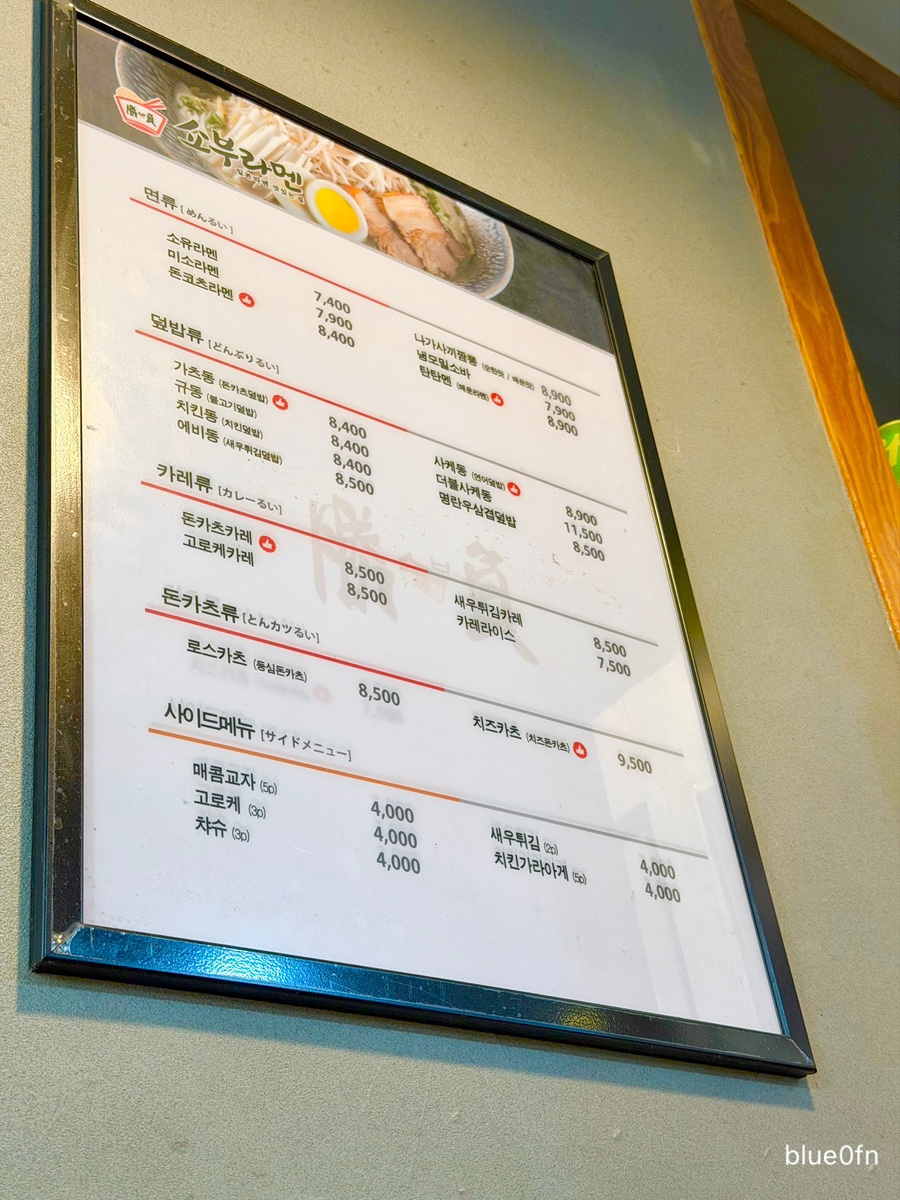 쇼부라멘
면류 [めんるい]
소유라멘 7,400
미소라멘 7,900
돈코츠라멘 8,400
나가사끼짬뽕 (순한맛 / 매운맛) 8,900
냉모밀소바 7,900
탄탄멘 (매운라멘) 8,900
덮밥류 [どんぶりるい]
가츠동 (돈카츠덮밥) 8,400
규동 (불고기덮밥) 8,400
치킨동 (치킨덮밥) 8,400
에비동 (새우튀김덮밥) 8,500
사케동 (연어덮밥) 8,900
더블사케동 11,500
명란우삼겹덮밥 8,500
카레류 [カレーるい]
돈카츠카레 8,500
고로케카레 8,500
새우튀김카레 8,500
카레라이스 7,500
돈카츠류 [とんカツるい]
로스카츠 (등심돈카츠) 8,500
치즈카츠 (치즈돈카츠) 9,500
사이드메뉴 [サイドメニュー]
매콤교자 (5p) 4,000
고로케 (3p) 4,000
챠슈 (3p) 4,000
새우튀김 (2p) 4,000
치킨가라아게 (5p) 4,000
勝 負
blue0fn